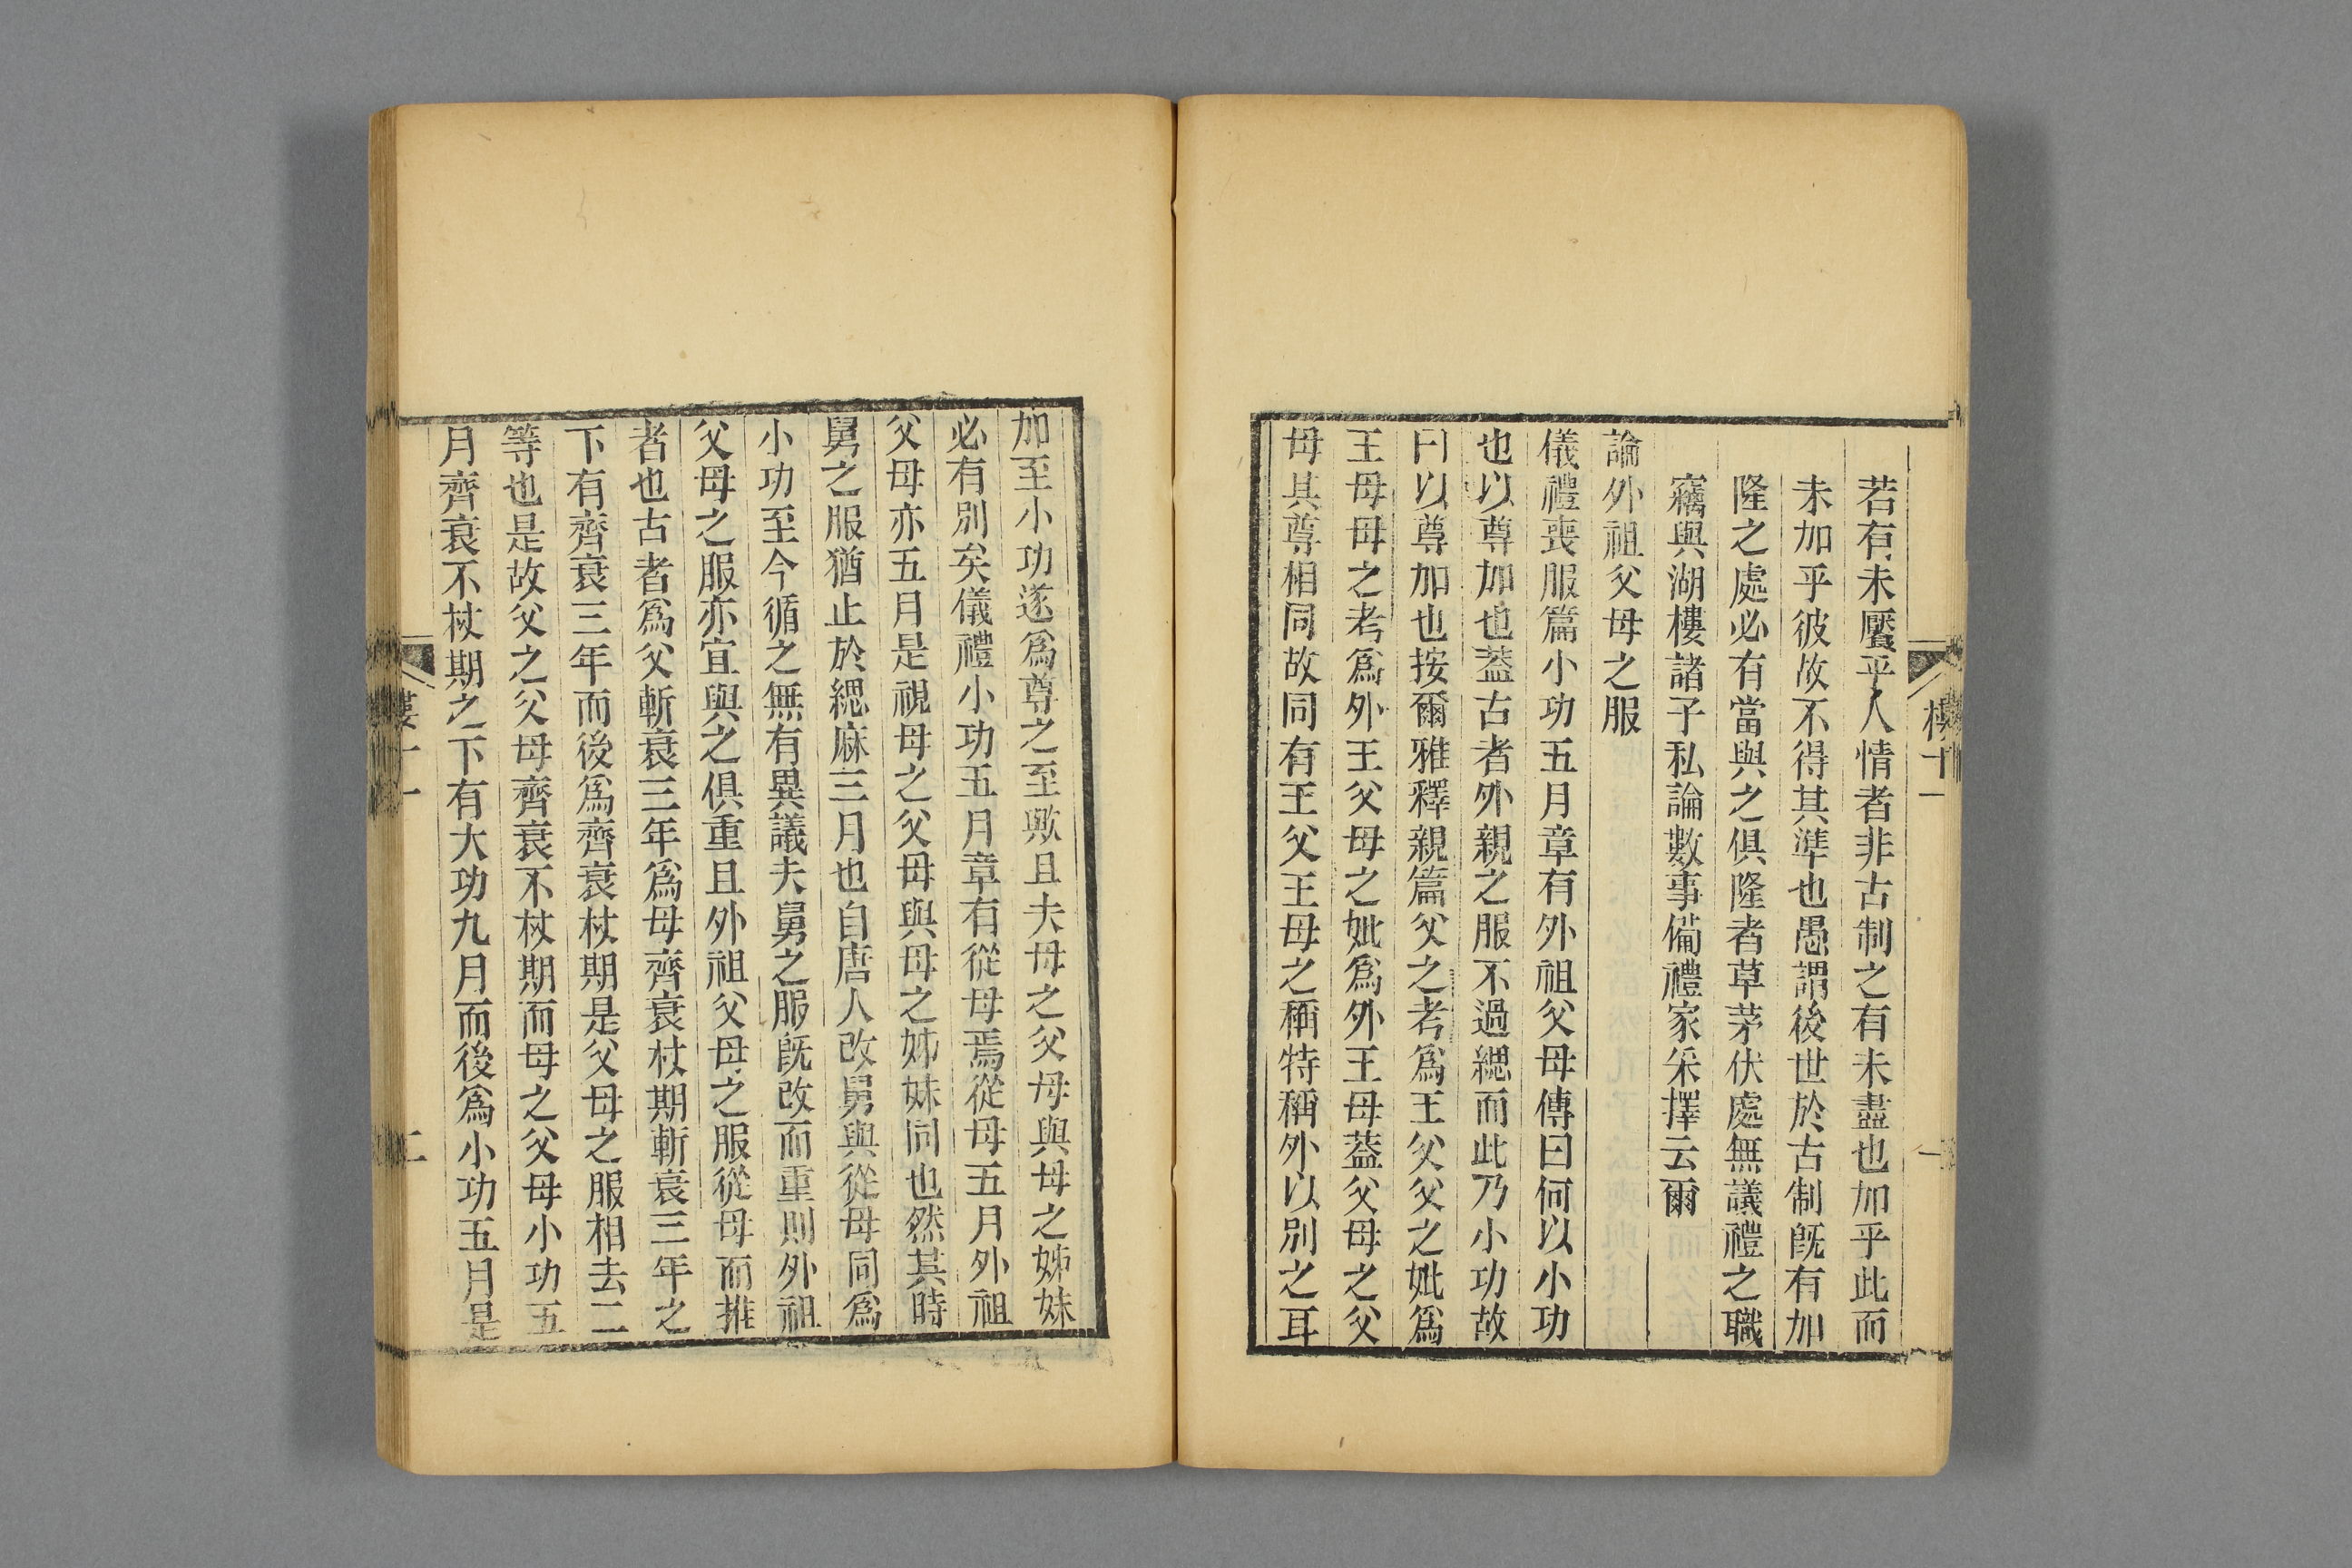 若有未饜乎人情者非古制之有未盡也加乎此而
未加乎彼故不得其準也愚謂後世於古制旣有加
隆之處必有當與之俱隆者草茅伏處無議禮之職
竊與湖樓諸子私論數事備禮家采擇云爾
論外祖父母之服
儀禮喪服篇小功五月章有外祖父母傳曰何以小功
也以尊加也葢古者外親之服不過緦而此乃小功故
曰以尊加也按爾雅釋親篇父之考爲王父父之妣爲
王母母之考爲外王父母之妣爲外王母葢父母之父
母其尊相同故同有王父王母之稱特稱外以別之耳
樓十一
一
加至小功遂爲尊之至歟且夫母之父母與母之姊妹
必有別矣儀禮小功五月章有從母焉從母五月外祖
父母亦五月是視母之父母與母之姊妹同也然其時
舅之服猶止於緦麻三月也自唐人改舅與從母同爲
小功至今循之無有異議夫舅之服旣改而重則外祖
父母之服亦宜與之俱重且外祖父母之服從母而推
者也古者爲父斬衰三年爲母齊衰杖期斬衰三年之
下有齊衰三年而後爲齊衰杖期是父母之服相去二
等也是故父之父母齊衰不杖期而母之父母小功五
月齊衰不杖期之下有大功九月而後爲小功五月是
樓十一
二